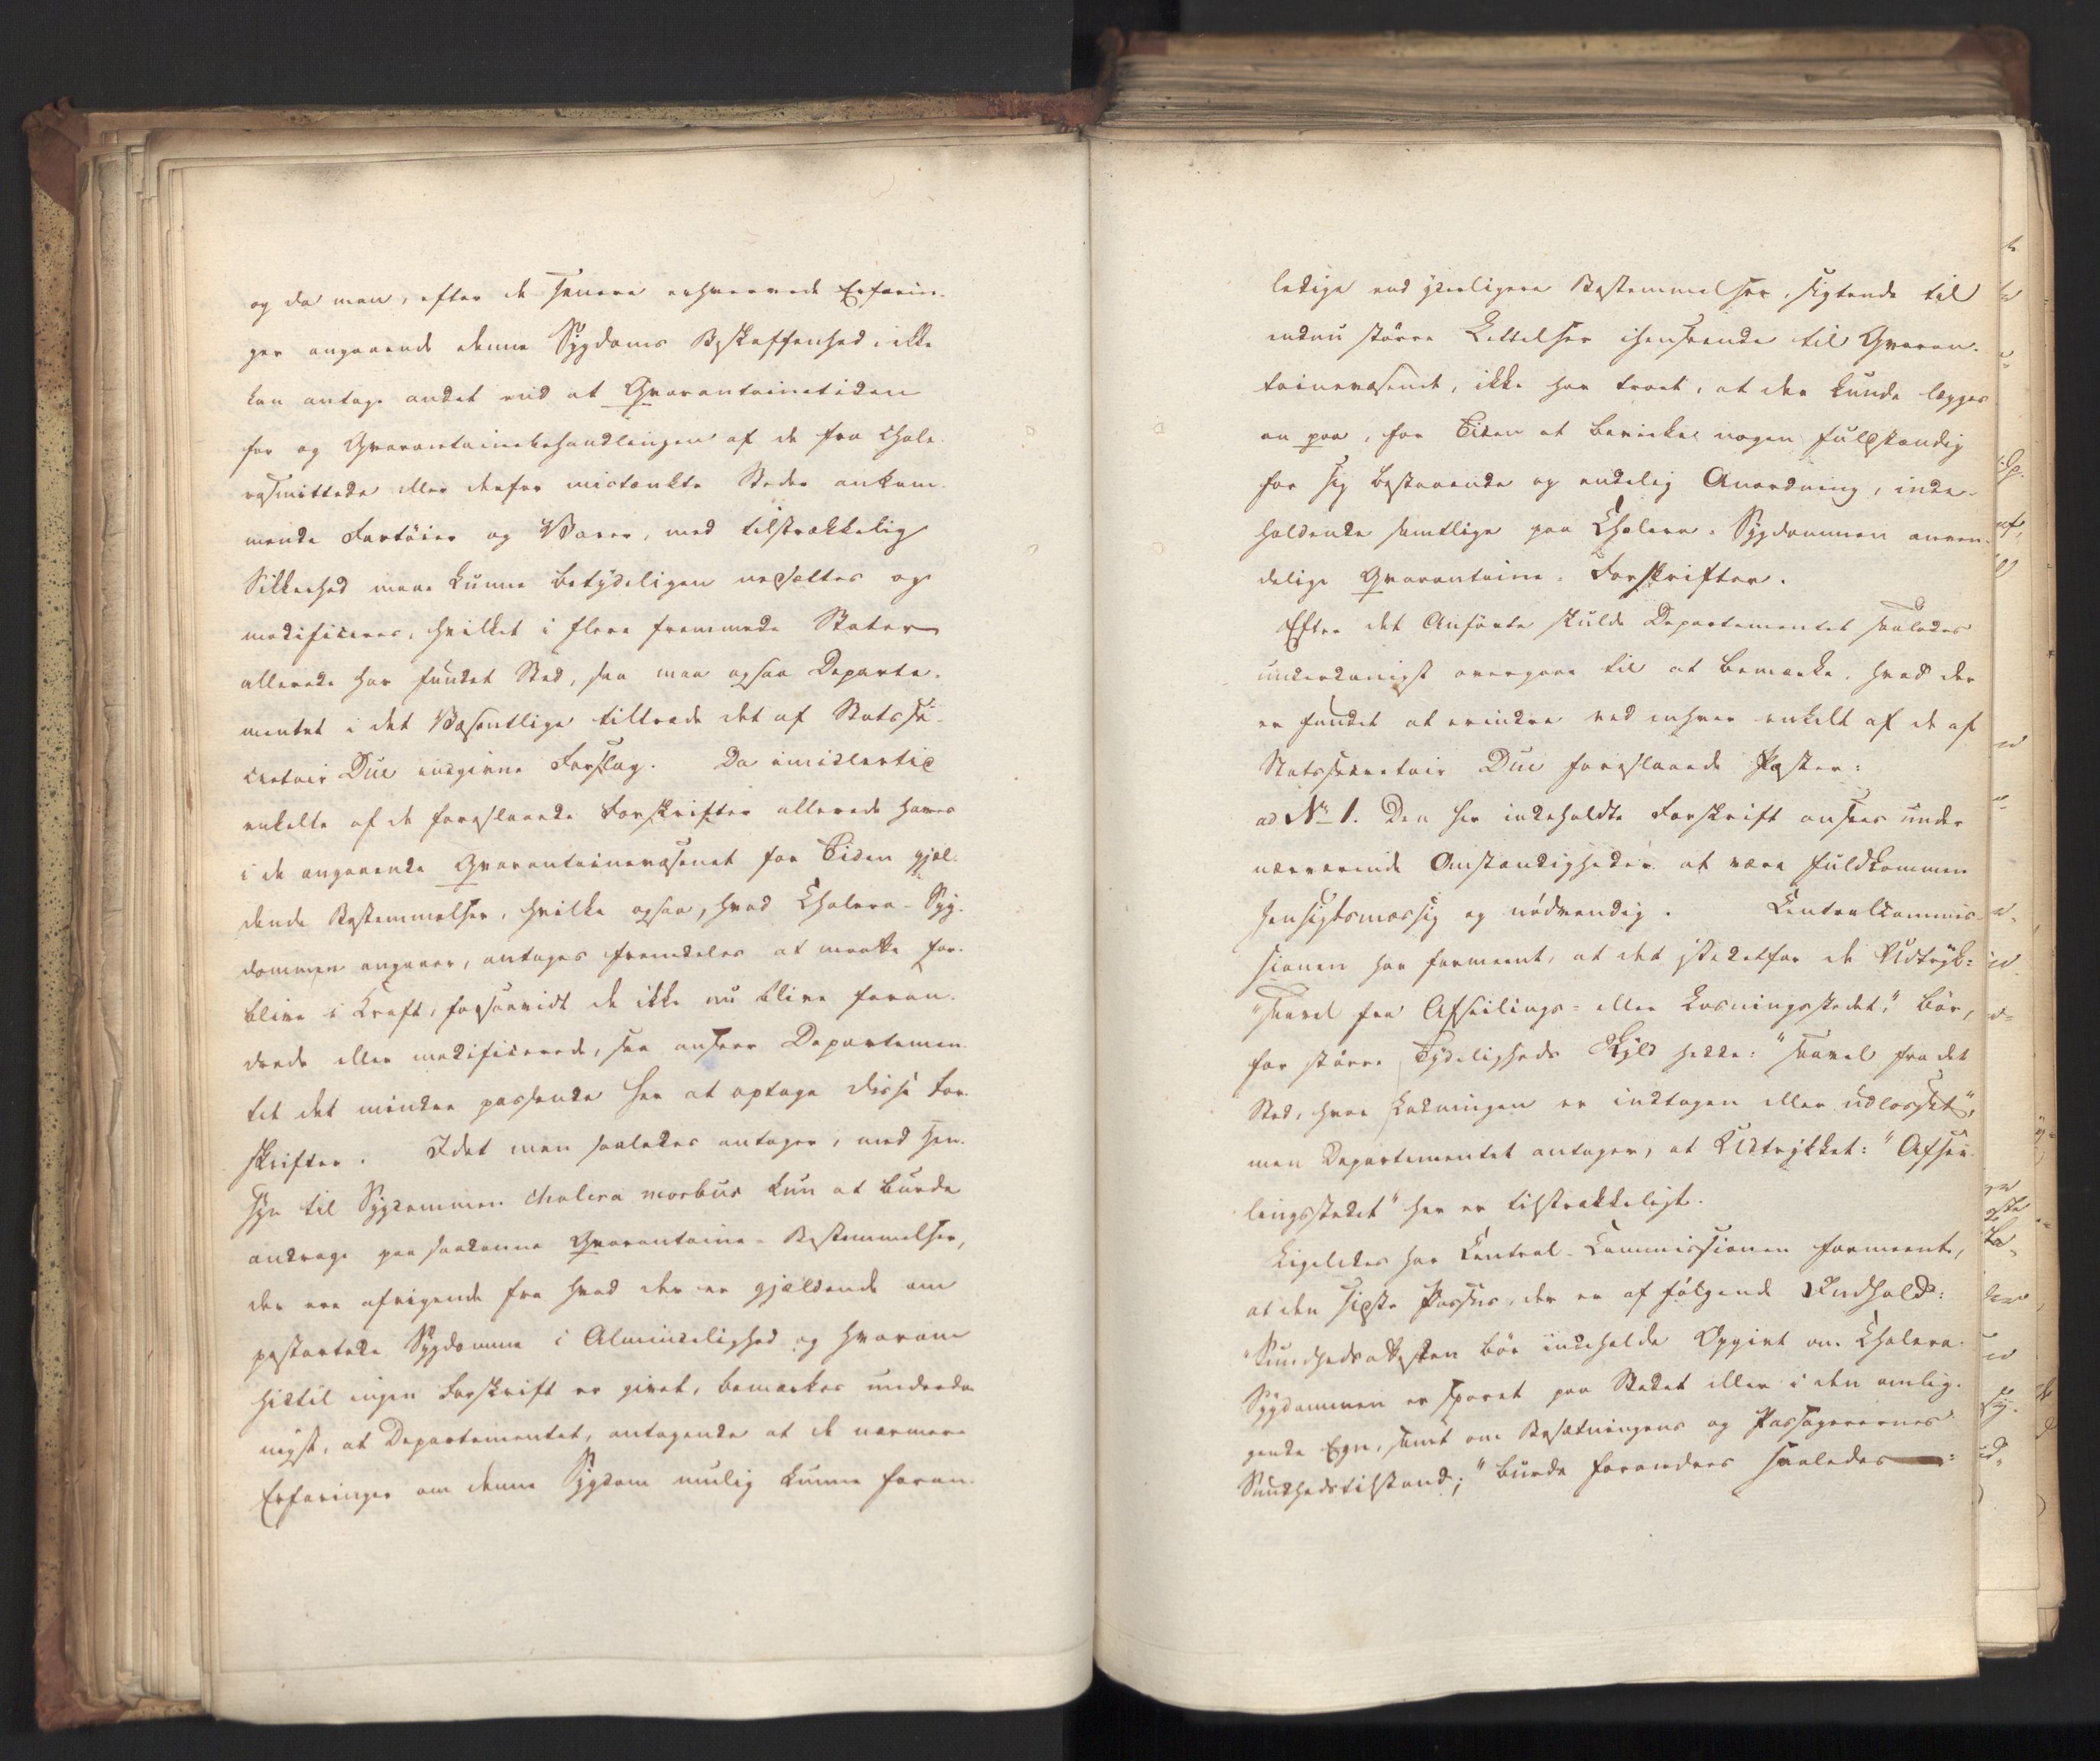 og da man, efter de senere erhvervede Erfarin-
ger angaaende denne Sygdoms Beskaffenhed, ikke
kan antage andet end at Qvarantainetiden
for og Qvarantainebehandlingen af de fra chole-
rasmittede eller derfor mistænkte Steder ankom-
mende Fartöier og Varer, med tilstrækkelig
Sikkerhed maae kunne betydeligen nedsættes og
modificeres, hvilket i flere fremmede Stater
allerede har fundet Sted, saa maa ogsaa Departe-
mentet i det Væsentlige tiltræde det af Statsse-
cretair Due indgivne Forslag. Da imidlertid
enkelte af de foreslaaede Forskrifter allerede haves
i de angaaende Qvarantainevæsenet for Tiden gjæl-
dende Bestemmelser, hvilke ogsaa, hvad Cholera-Syg-
dommen angaaer, antages fremdeles at maatte for-
blive i Kraft, forsaavidt de ikke nu blive foran-
drede eller modificerede, saa ansees Departemen-
tet det mindre passende her at optage disse For-
skrifter. Idet man saaledes antager, med Hen-
syn til Sygdommen cholera morbus kun at burde
andrage paa saadanne Qvarantaine-Bestemmelser,
der ere afvigende fra hvad der er gjældende om
pestartede Sygdomme i Almindelighed og hvorom
hidtil ingen Forskrift er givet, bemærkes underda-
nigst, at Departementet, antagende at de nærmere
Erfaringer om denne Sygdom mulig kunne foran-
ledige end yderligere Bestemmelser, sigtende til
endnu större Lettelser ihenseende til Qvaran-
tainevæsenet, ikke har troet, at der kunde lægges
an paa, for Tiden at bevirke nogen fuldstændig
for sig bestaaende og endelig Anordning, inde-
holdende samtlige paa Cholera-Sygdommen anven-
delige Qvarantaine-Forskrifter.
Efter det Anförte skulde Departementet saaledes
underdanigst overgaae til at bemærke, hvad der
er fundet at erindre ved enhver enkelt af de af
Statssecretair Due foreslaaede Poster:
ad No 1. Den her indeholdte Forskrift ansees under
nærværende Omstændigheder at være fuldkommen
hensigtsmæssig og nödvendig. Centralcommis-
sionen har formeent, at det istedetfor de Udtryk:
"saavel fra Afseilings- eller Losningsstedet," bör,
for större Tydeligheds Skyld hedde: "saavel fra det
Sted, hvor Ladningen er indtagen eller udlosset",
men Departementet antager, at Udtrykket: "Afsei-
lingsstedet" her er tilstrækkeligt.
Ligeledes har Central-Commissionen formeent,
at den sidste Passus, der er af fölgende Indhold:
"Sundhedsattesten bör indeholde Opgivt om Cholera-
Sygdommen er sporet paa Stedet eller i den omlig-
gende Egn, samt om Besætningens og Passagerernes
Sundhedstilstand;" burde forandres saaledes: